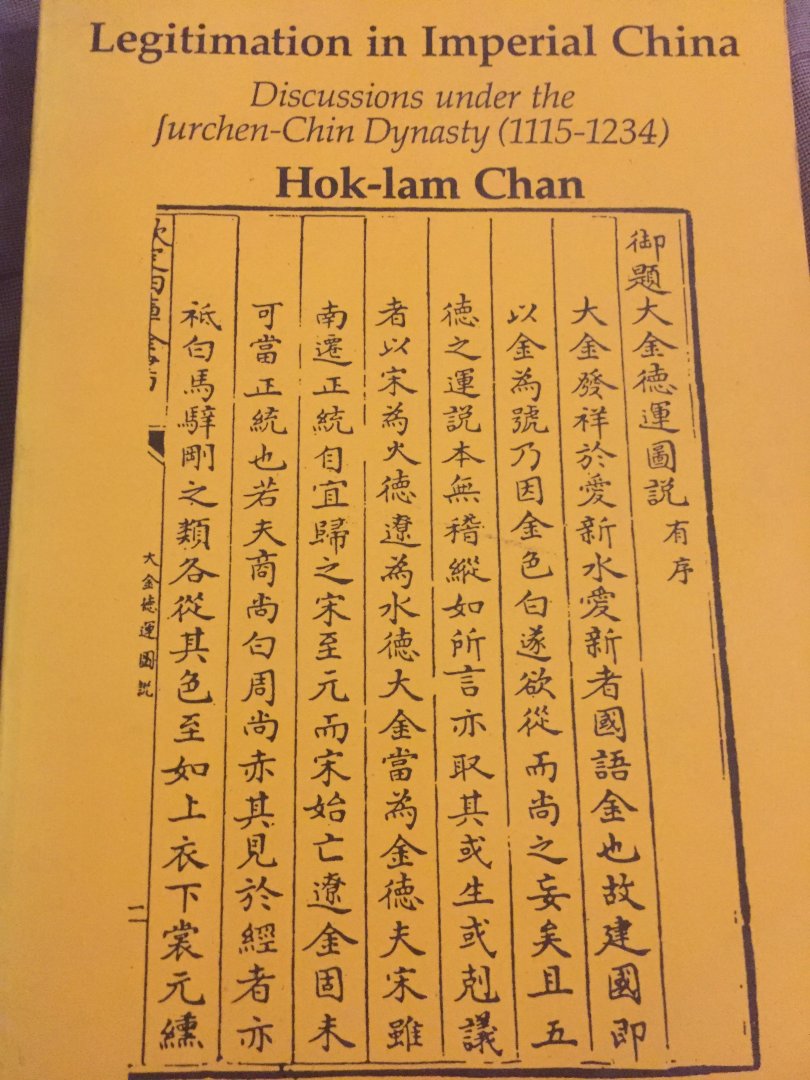 Legitimation in Imperial China
Discussions under the
Jurchen-Chin Dynasty (1115-1234)
Hok-lam Chan
御題大金徳運圖説有序
大金發祥於愛新水愛新者國語金也故建國即
以金為號乃因金色白遂欲從而尚之妄矣且五
徳之運説本無稽縱如所言亦取其或生或剋議
者以宋為火徳遼為水徳大金當為金徳夫宋雖
南遷正統自宜歸之宋至元而宋始亡遼金固未
可當正統也若夫商尚白周尚赤其見於經者亦
祗白馬騂剛之類各從其色至如上衣下裳元纁
大金徳運圖説
二